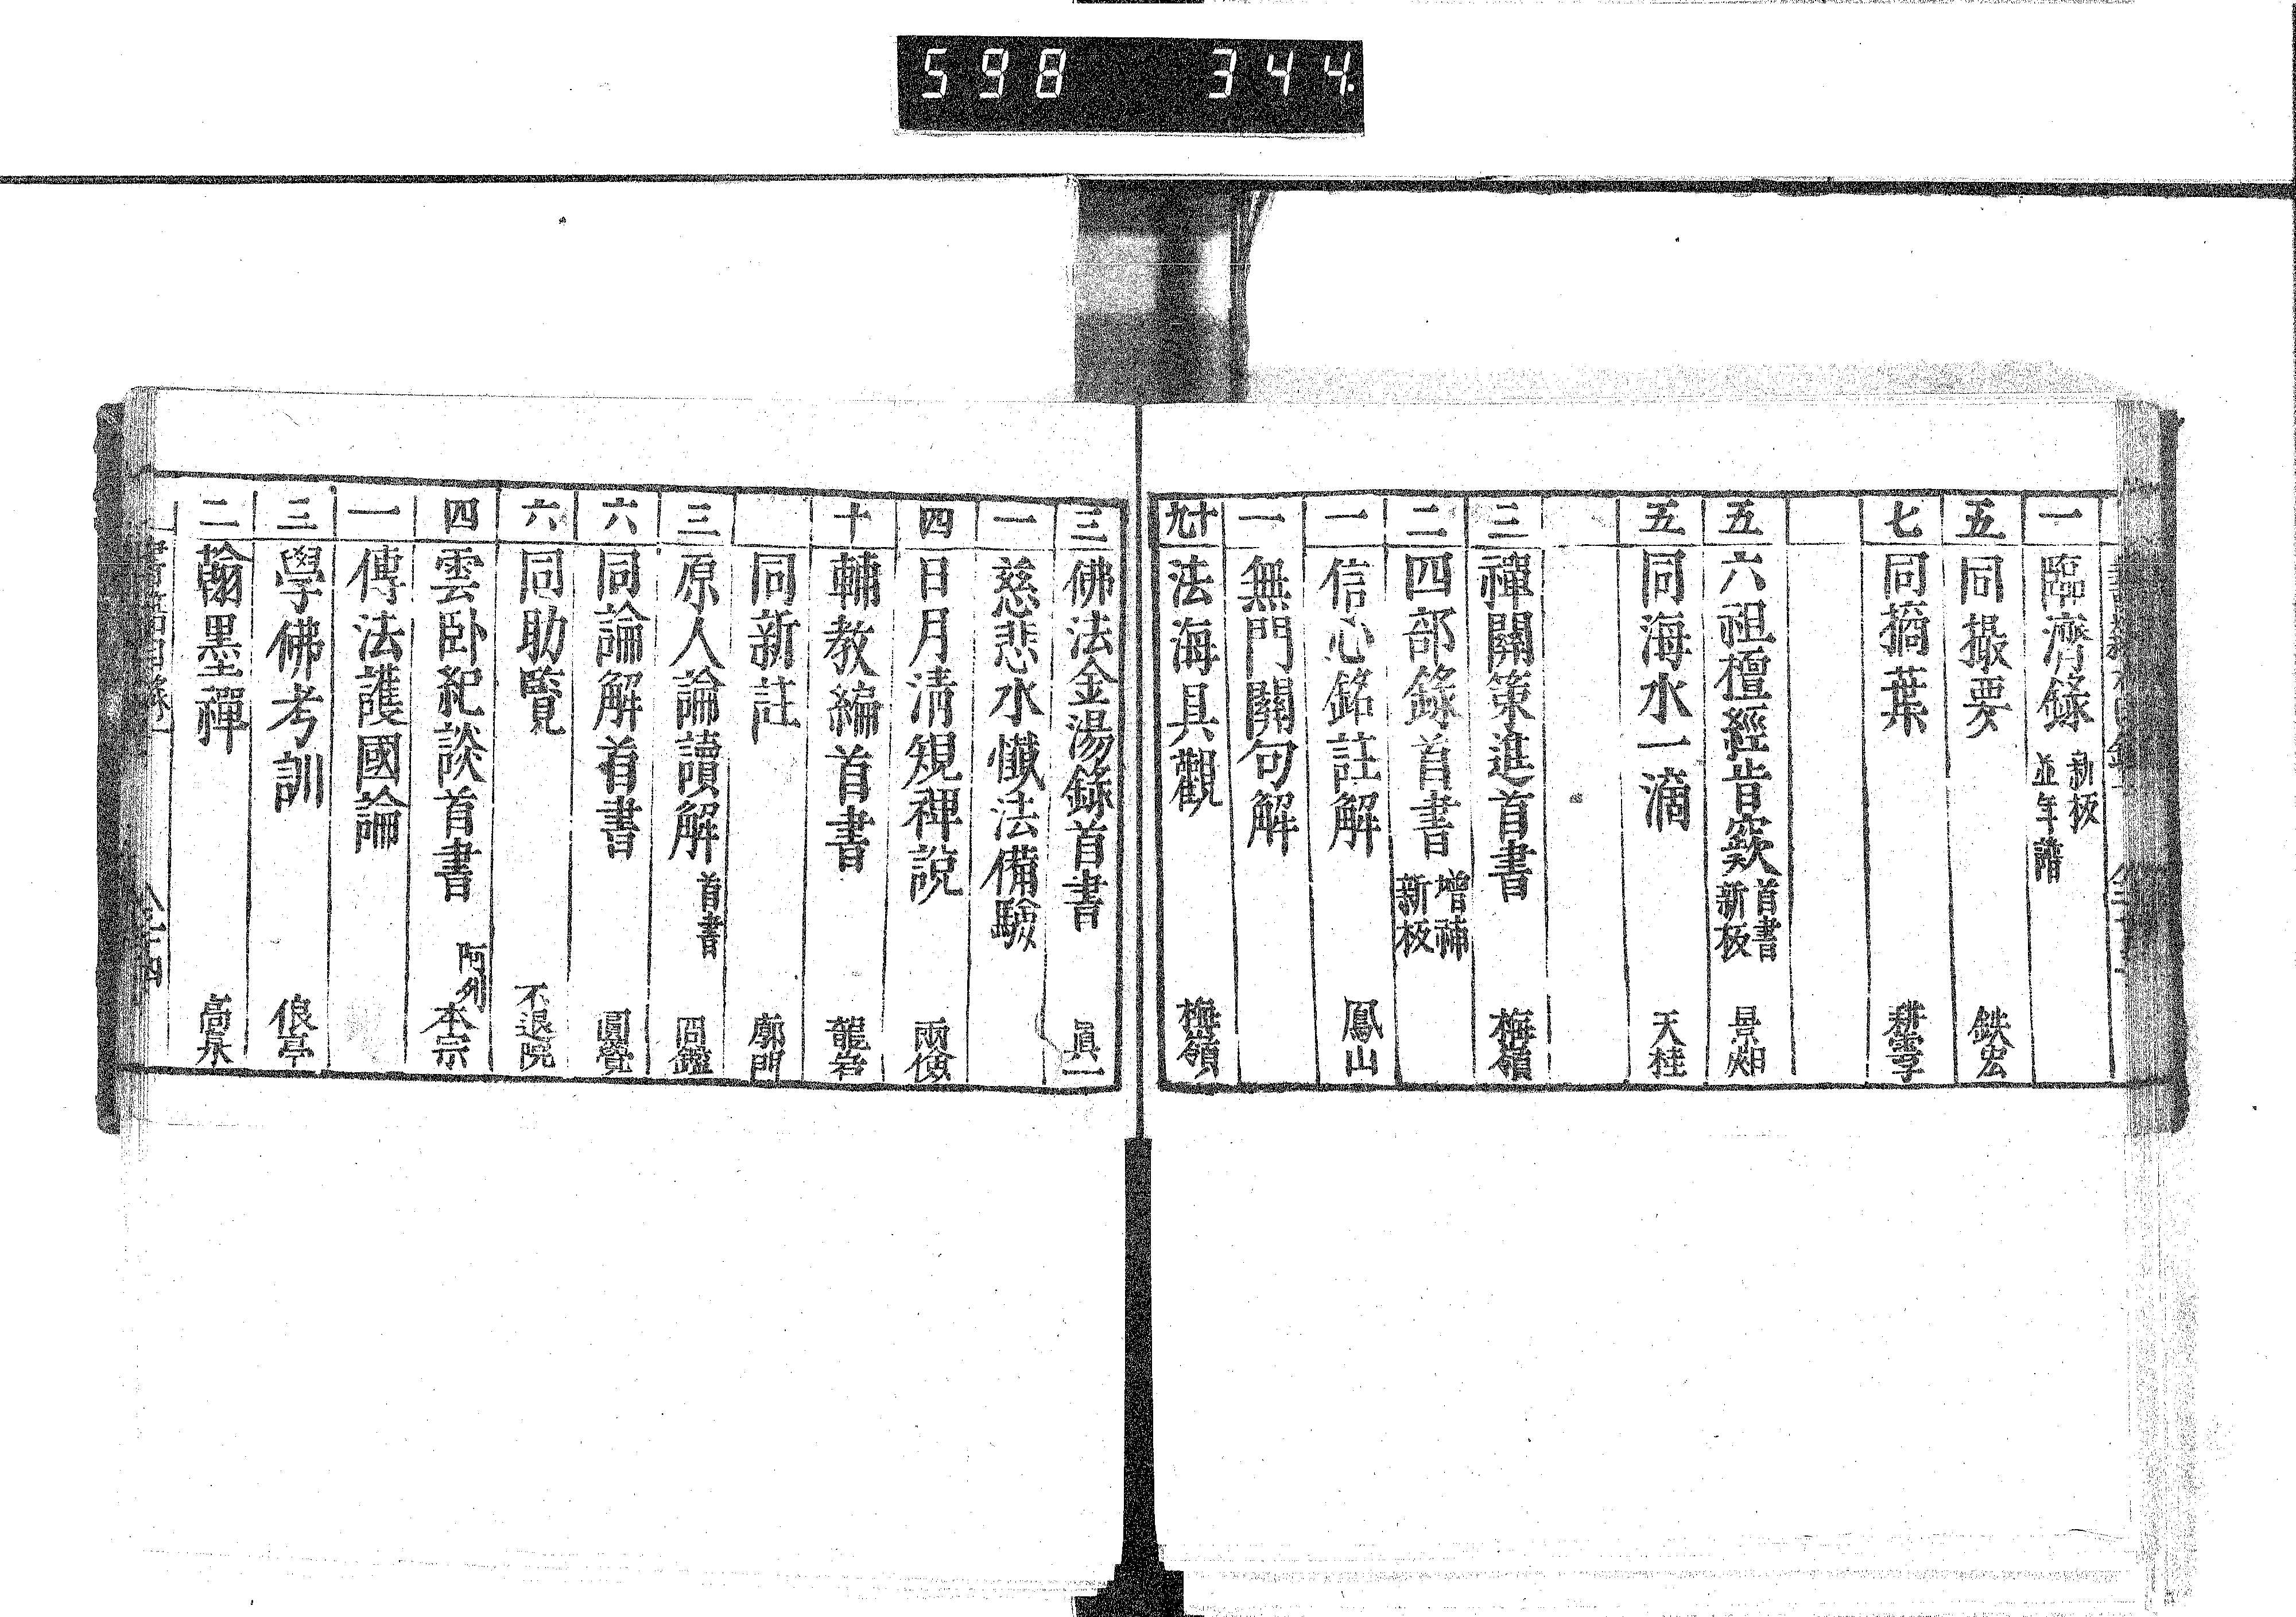 598 344
一 臨濟錄 新板 並年譜
五 同撮要 鉄宏
七 同摘葉 耕雲
五 六祖檀經肯窾 首書 新板
五 同海水一滴 天桂
三 禪關策進首書 梅嶺
二 四部錄首書 增補 新板
一 信心銘註解 鳳山
一 無門關句解
十九 法海具觀 梅嶺
三 佛法金湯錄首書 眞一
一 慈悲水懺法備驗
四 日月清規禆說
十 輔教編首書
同新註 廓門
三 原人論讀解 首書 円鑑
六 同論解首書 圓覺
六 同助覽 不退院
四 雲卧紀談首書 本宗
一 傳法護國論
三 學佛考訓 俍亭
二 翰墨禪 高泉